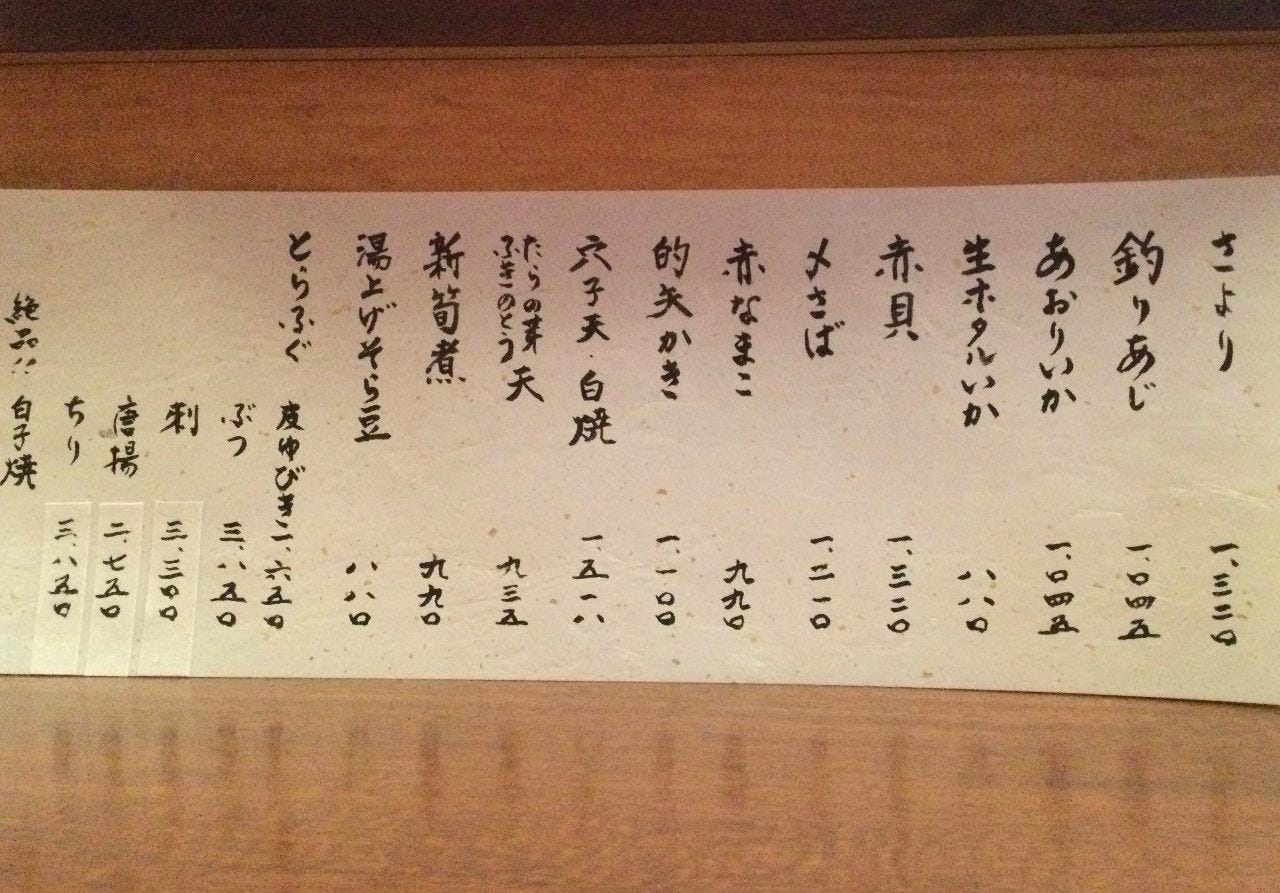 さより 一、三二〇
釣りあじ 一、〇四五
あおりいか 一、〇四五
生ホタルいか 八八〇
赤貝 一、三二〇
〆さば 一、二一〇
赤なまこ 九九〇
的矢かき 一、一〇〇
穴子天・白焼 一、五一八
たらの芽
ふきのとう 天 九三五
新筍煮 九九〇
湯上げそら豆 八八〇
とらふぐ
皮ゆびき 二、六五〇
ぶつ 三、八五〇
刺 三、三〇〇
唐揚 二、七五〇
ちり 三、八五〇
絶品!! 白子焼